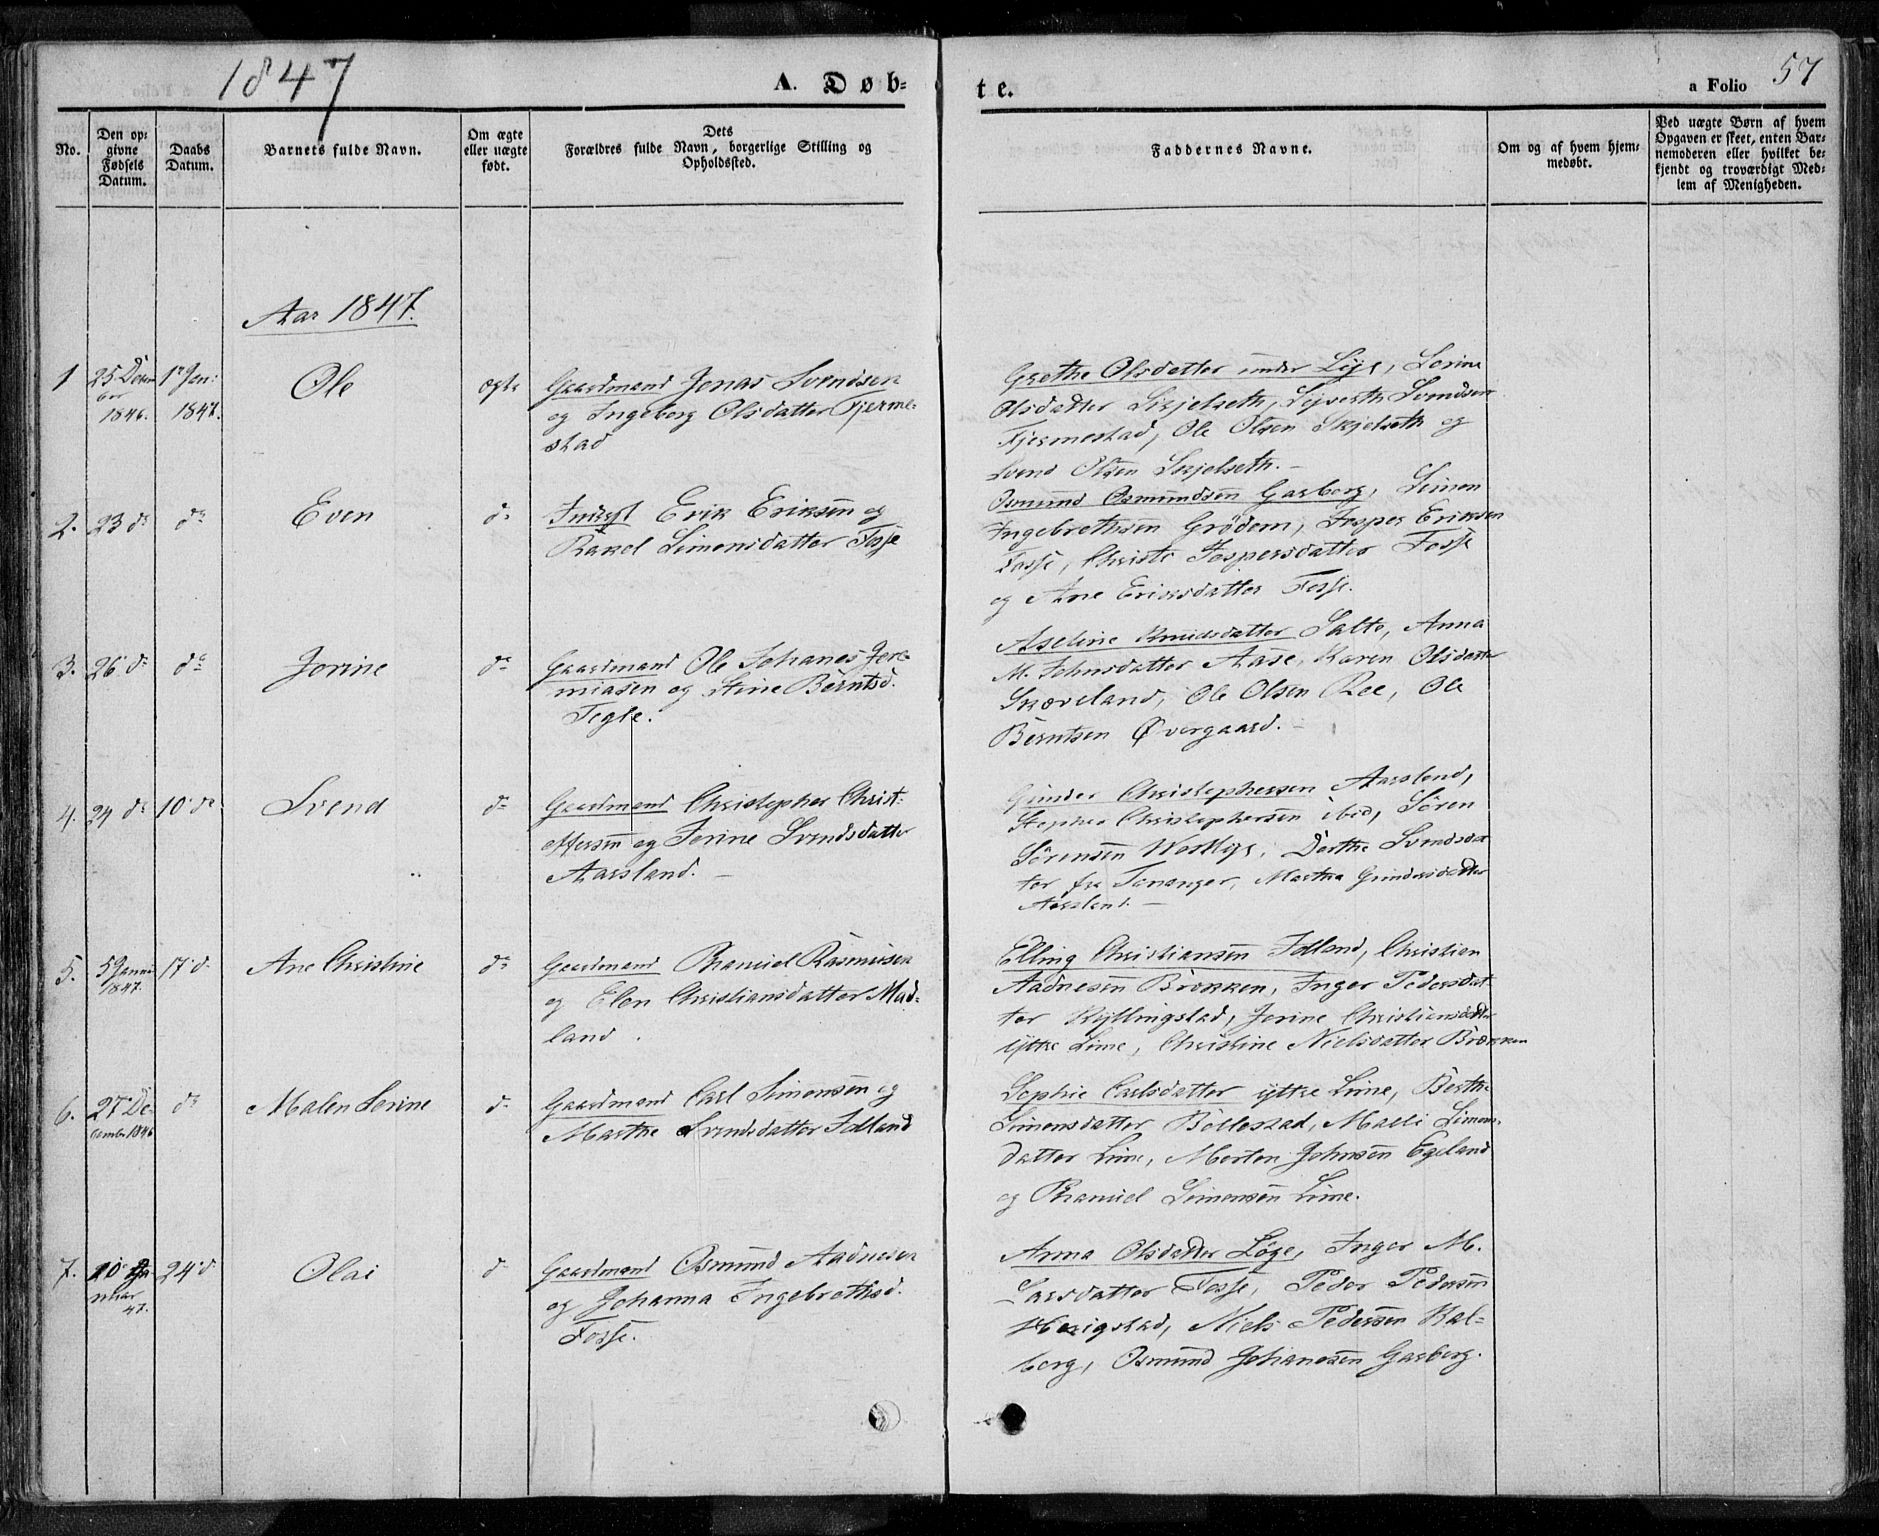 1847
A. Døb-
te.
a Folio 57
No.
Den op-
givne
Fødsels
Datum.
Daabs
Datum.
Barnets fulde Navn.
Om ægte
eller uægte
født.
Dets
Forældres fulde Navn, borgerlige Stilling og
Opholdssted.
Faddernes Navne.
Om og af hvem hjem-
medøbt.
Ved uægte Børn af hvem
Opgaven er skeet, enten Bar-
nemoderen eller hvilket be-
kjendt og troværdigt Med-
lem af Menigheden.
Aar 1847.
1
25 Decem
ber
1846.
1ste Jan:
1847.
Ole
ægte
Gaardmand Jonas Svendsen
og Ingeborg Olsdatter Tjerme-
stad
Grethe Olsdatter under Lye, Serine
Olsdatter Skjelseth, Sivert Svendsen
Tjermestad, Ole Olsen Skjelseth og
Svend Olsen Skjelseth.
2.
23 do
do
Even
do
Inderst Erik Eriksen og
Rakel Simonsdatter Fosse
Osmund Osmundsen Garborg, Simon
Ingebretsen Grödem, Jesper Eriksen
Fosse, Christi Jespersdatter Fosse
og Ane Eriksdatter Fosse.
3.
26 do
do
Jorine
do
Gaardmand Ole Johanes Jere-
miasen og Stine Berntsd.
Tegle.
Aseline Knudsdatter Salte, Anna
M. Johnsdatter Aase, Karen Olsdatter
Skæveland, Ole Olsen Roe, Ole
Berntsen Øvergaard.
4.
24 do
10 do
Svend
do
Gaardmand Christopher Christ-
offersen og Jorine Svendsdatter
Aarsland.
Gunder Christophersen Aarsland,
Stephen Christophersen ibid, Sören
Sörensen Westlye, Dorthe Svendsdat
ter fra Tananger, Martha Gundersdatter
Aarsland.
5.
5 Januar
1847.
17 do
Ane Christine
do
Gaardmand Thamiel Rasmusen
og Elen Christiansdatter Mad-
land.
Elling Christiansen Idland, Christian
Aadnesen Brekken, Inger Pedersdat
ter Kyllingstad, Jorine Christiansdatter
ytre Lime, Christine Nielsdatter Brekken
6.
27 De-
cember 1846
do
Malen Serine
do
Gaardmand Carl Simonsen og
Marthe Svendsdatter Idland
Sophie Carlsdatter ytre Lime, Berthe
Simonsdatter Böllestad, Malli Simons-
datter Lime, Morten Johnsen Egeland
og Thamiel Simonsen Lime.
7.
10 Ja
nuar
47.
24 do
Olai
do
Gaardmand Osmund Aadnesen
og Johanna Ingebrethsd.
Fosse.
Anna Olsdatter Löge, Inger M.
Larsdatter Fosse, Peder Pedersen
Herigstad, Niels Pedersen Kal-
berg, Osmund Johanesen Garborg.